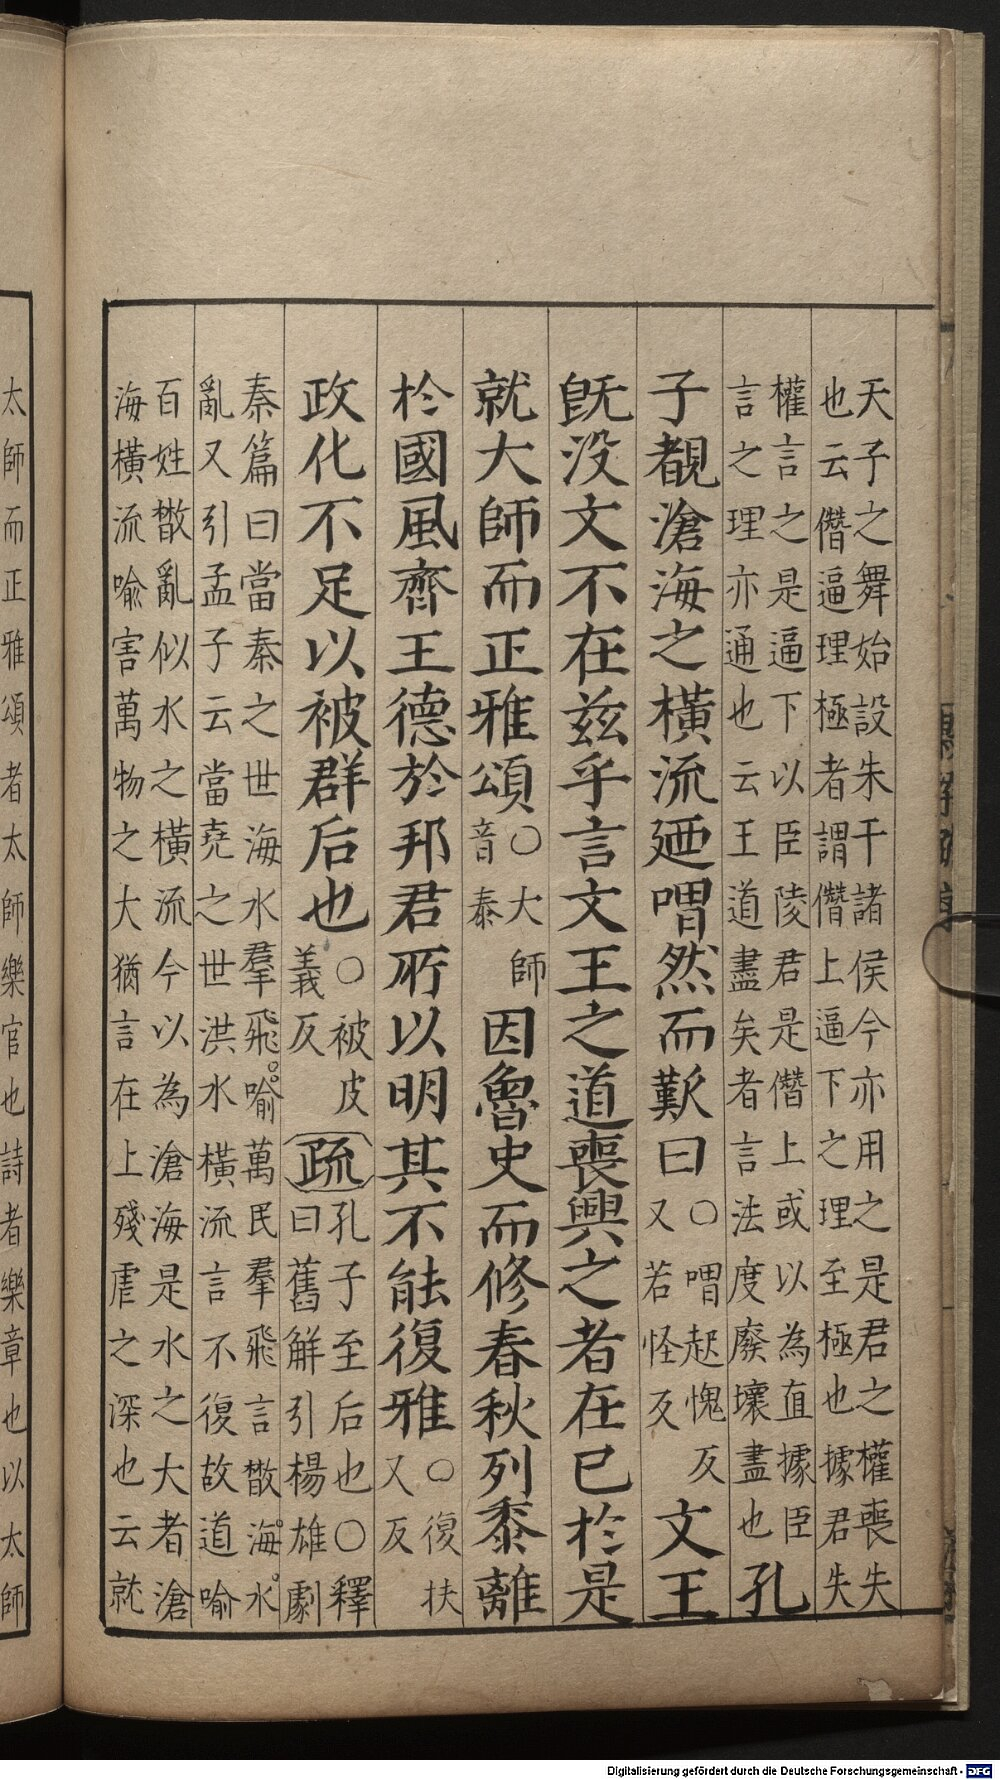 天子之舞始設朱干諸侯今亦用之是君之權喪失
也云僭逼理極者謂僭上逼下之理至極也據君失
權言之是逼下以臣陵君是僭上或以為直據臣
言之理亦通也云王道盡矣者言法度廢壞盡也
孔
子覩滄海之橫流廼喟然而歎曰
○喟起愧反
又若怪反
文王
旣没文不在兹乎言文王之道喪興之者在已於是
就大師而正雅頌
○大師
音泰
因魯史而修春秋列黍離
於國風齊王德於邦君所以明其不能復雅
○復扶
又反
政化不足以被群后也
○被皮
義反
疏
孔子至后也○釋
曰舊解引楊雄劇
秦篇曰當秦之世海水羣飛喻萬民羣飛言散海水
亂又引孟子云當堯之世洪水橫流言不復故道喻
百姓散亂似水之橫流今以為滄海是水之大者滄
海橫流喻害萬物之大猶言在上殘虐之深也云就
太師而正雅頌者太師樂官也詩者樂章也以太師
Digitalisierung gefördert durch die Deutsche Forschungsgemeinschaft - DFG